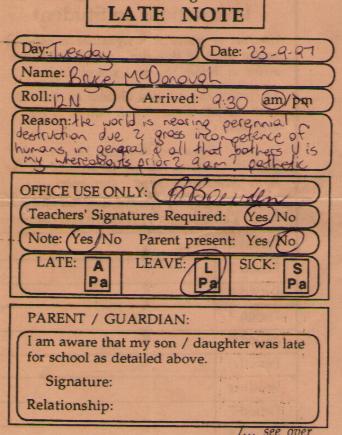 LATE NOTE
Day: Tuesday Date: 23-9-97
Name: Bryce McDonough
Roll: 12N Arrived: 9:30 am/pm
Reason: the world is nearing perennial
destruction due 2 gross incompetence of
humans, in general & all that bothers U is
my whereabouts prior 2 9am? pathetic
OFFICE USE ONLY: BBowden
Teachers' Signatures Required: Yes/No
Note: Yes/No Parent present: Yes/No
LATE: A Pa LEAVE: L Pa SICK: S Pa
PARENT / GUARDIAN:
I am aware that my son / daughter was late
for school as detailed above.
Signature:
Relationship:
/... see over